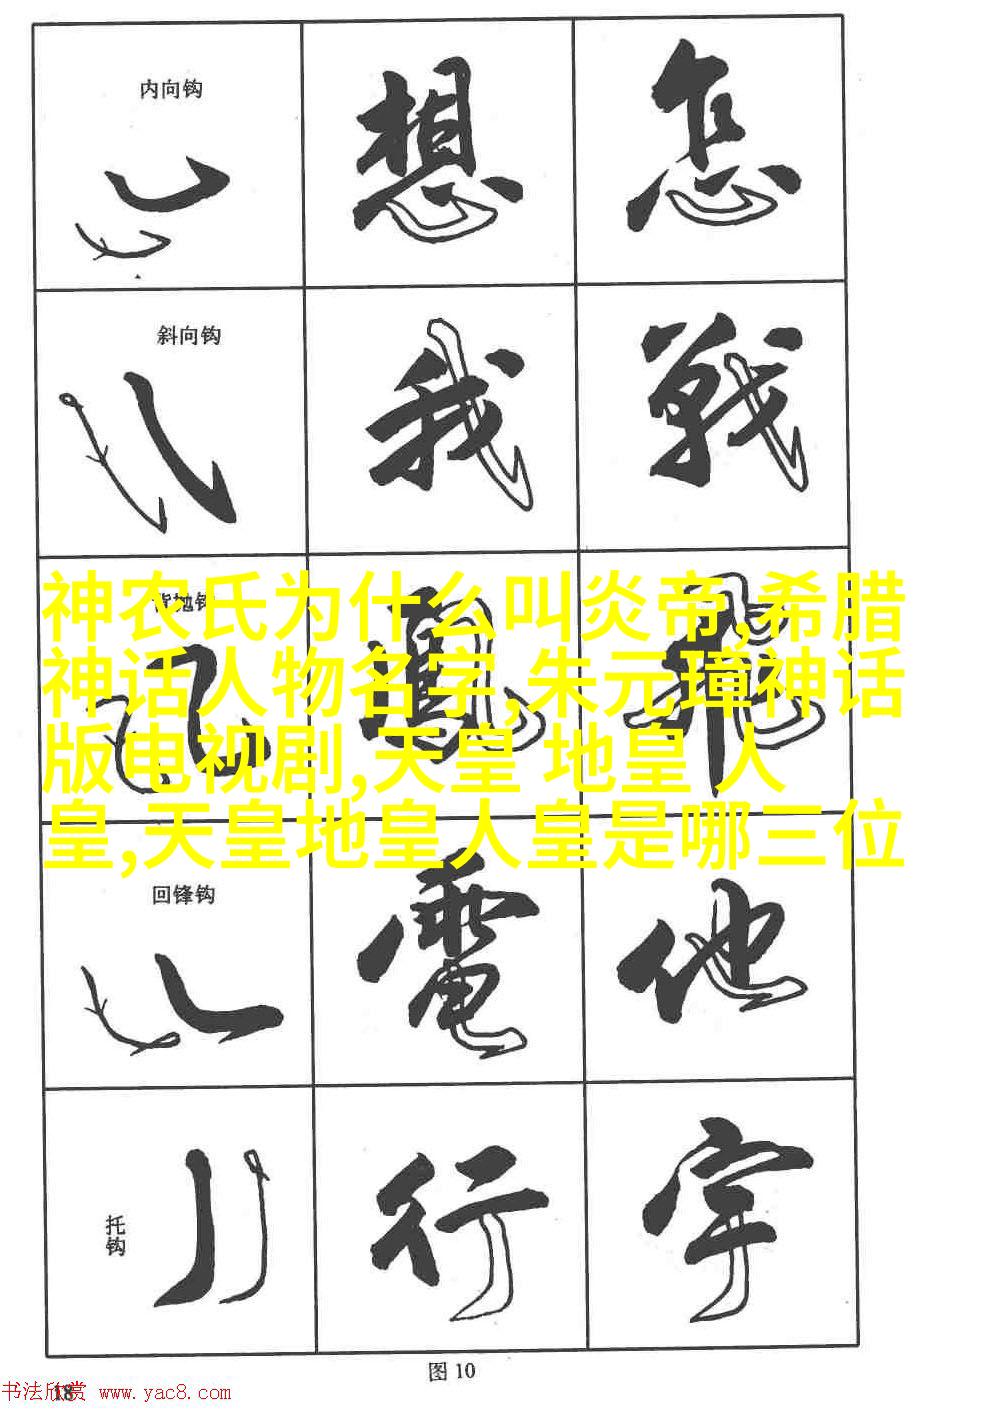 内向钩 想 怎
斜向钩 我 戰
背抛钩 風 飛
神农氏为什么叫炎帝,希腊
神话人物名字,朱元璋神话
版电视剧,天皇 地皇 人
皇,天皇地皇人皇是哪三位
回锋钩 電 他
托钩 行 字
图 10
18
书法欣赏 www.yac8.com